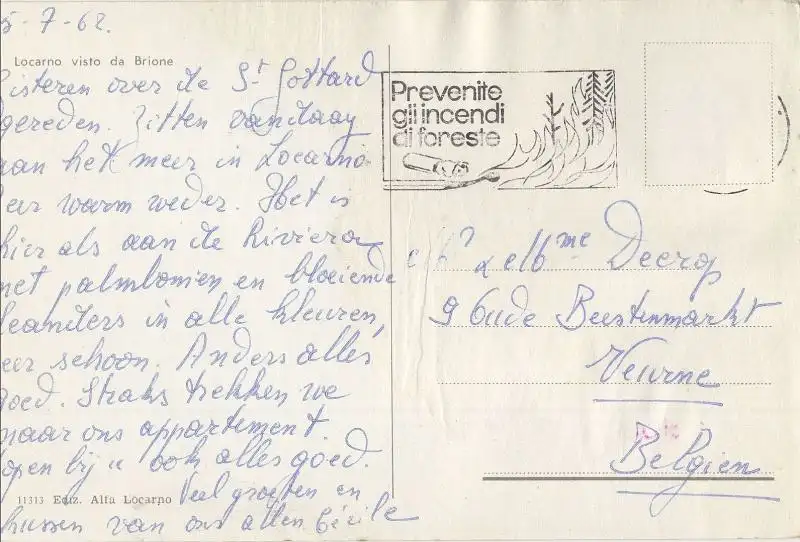 5-7-62.
Locarno visto da Brione
isteren over de St Gottard
gereden. Zitten vandaag
aan het meer in Locarno
eer warm weder. Het is
hier als aan de Riviera
met palmbomen en bloeiende
leanders in alle kleuren,
eer schoon. Anders alles
goed. Straks trekken we
naar ons appartement.
open bij u ook alles goed.
Veel groeten en
kussen van ons allen Cécile
11313 Ediz. Alfa Locarno
Prevenite
gli incendi
di foreste
Decrop
9 Oude Beestenmarkt
Veurne
Belgien